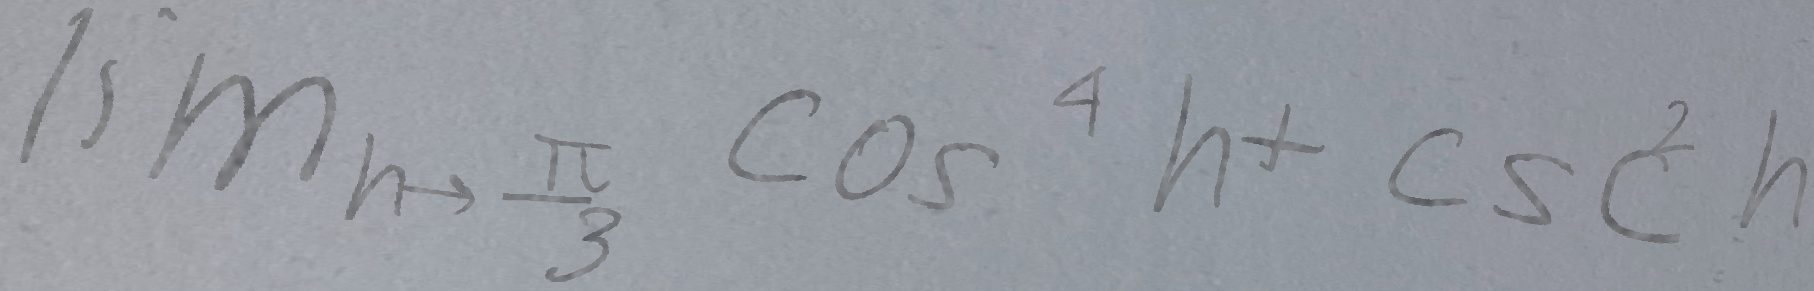 lim_{h→\frac{π}{3}} cos^4 h + csc^2 h